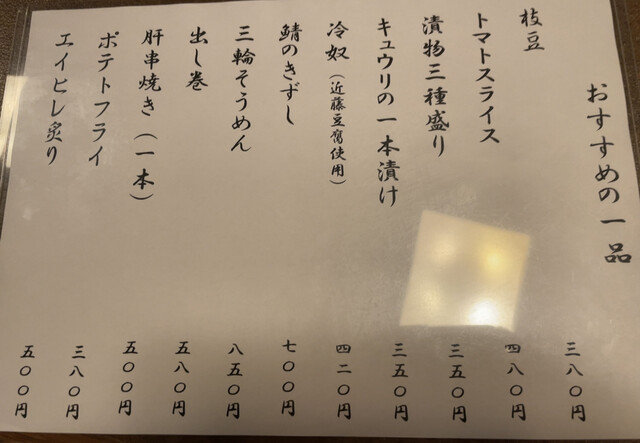 おすすめの一品
枝豆 三八〇円
トマトスライス 四八〇円
漬物三種盛り 三五〇円
キュウリの一本漬け 三五〇円
冷奴(近藤豆腐使用) 四二〇円
鯖のきずし 七〇〇円
三輪そうめん 八五〇円
出し巻 五八〇円
肝串焼き(一本) 五〇〇円
ポテトフライ 三八〇円
エイヒレ炙り 五〇〇円